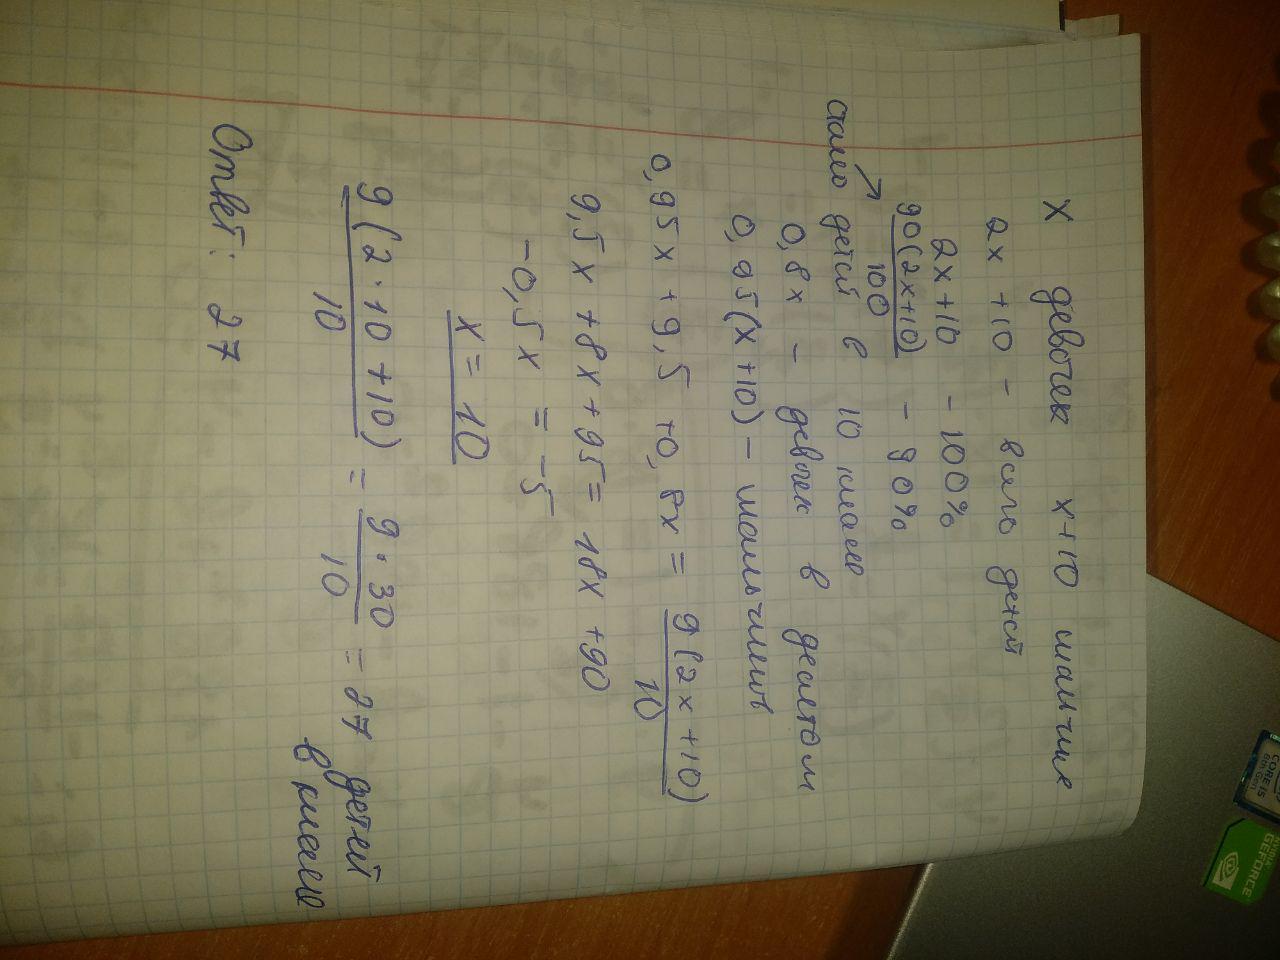 x девочек x+10 мальчик
2x +10 - всего детей
2x+10 - 100%
90(2x+10)/100 - 90%
стало детей в 10 классе
0,8x - девочек в десятом
0,95(x+10) - мальчиков
0,95x + 9,5 +0,8x = 9(2x+10)/10
9,5x +8x+95= 18x +90
-0,5x = -5
x = 10
9(2·10+10)/10 = 9·30/10 = 27 детей
в классе
Ответ: 27
CORE i5
6th Gen
GEFORCE